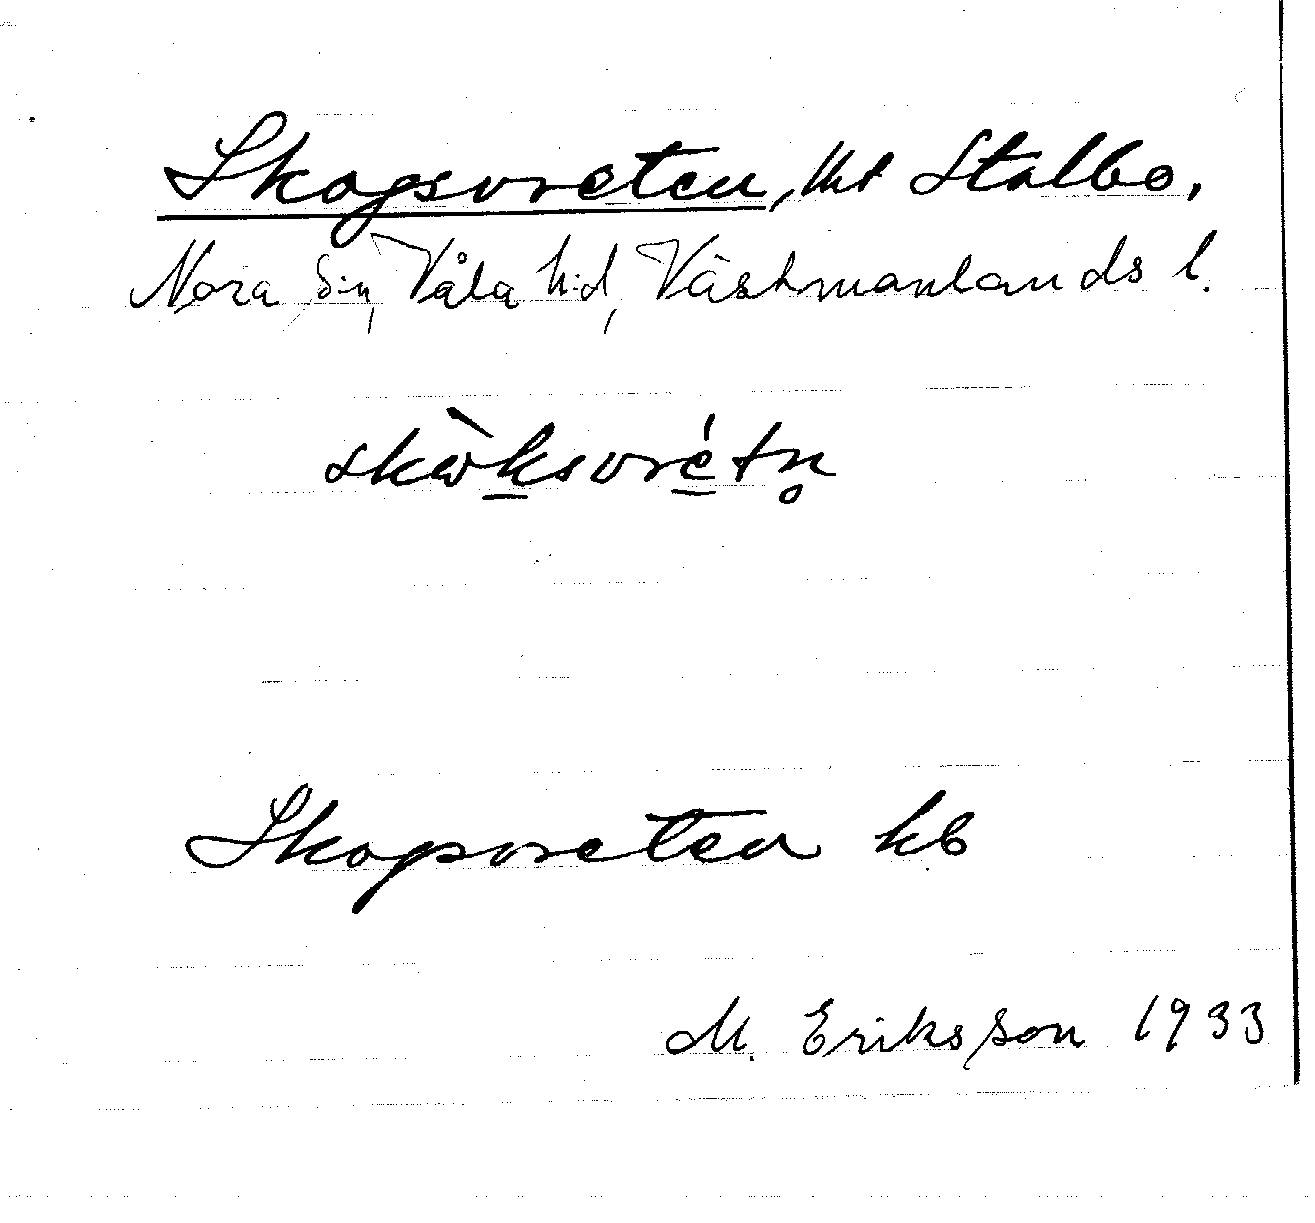 Skogsvreten, Stalbo,
Nora s:n, Våla h:d, Västmanlands l.
skòksvrétn̥
Skogsvreten kb
M. Eriksson 1933